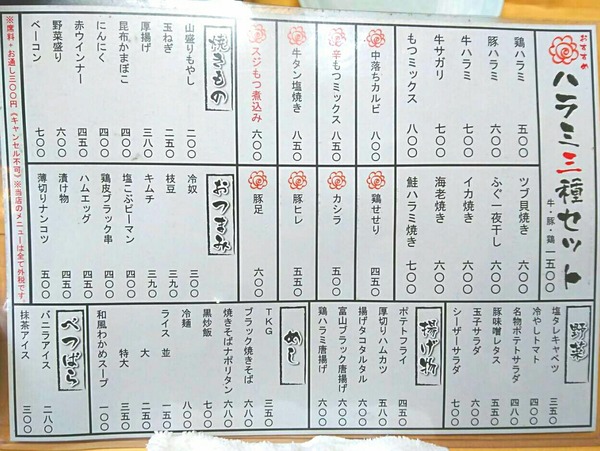 おすすめ
ハラミ三種セット
牛・豚・鶏 一五〇〇
鶏ハラミ 五五〇
豚ハラミ 五〇〇
牛ハラミ 七〇〇
牛サガリ 七〇〇
もつミックス 八〇〇
中落ちカルビ 八〇〇
辛もつミックス 八五〇
牛タン塩焼き 八五〇
スジもつ煮込み 六〇〇
ツブ貝焼き 六〇〇
ふぐ一夜干し 六〇〇
イカ焼き 六〇〇
海老焼き 七〇〇
鮭ハラミ焼き 七〇〇
鶏せせり 四五〇
カシラ 五五〇
豚ヒレ 五五〇
豚足 六〇〇
焼きもの
山盛りもやし 二〇〇
玉ねぎ 二五〇
厚揚げ 三八〇
昆布かまぼこ 四〇〇
にんにく 四〇〇
赤ウインナー 四五〇
野菜盛り 六〇〇
ベーコン 七〇〇
おつまみ
冷奴 三〇〇
枝豆 三九〇
キムチ 三九〇
塩こぶピーマン 四〇〇
鶏皮ブラック串 四〇〇
ハムエッグ 四五〇
漬け物 四五〇
薄切りナンコツ 五〇〇
野菜
塩タレキャベツ 三五〇
冷やしトマト 四五〇
名物ポテトサラダ 四八〇
豚味噌レタス 五五〇
玉子サラダ 六〇〇
シーザーサラダ 七〇〇
揚げ物
ポテトフライ 四五〇
厚切りハムカツ 五八〇
揚げタコタルタル 六〇〇
富山ブラック唐揚げ 六〇〇
鶏ハラミ唐揚げ 六〇〇
めし
TKG 三五〇
ブラック焼きそば 六八〇
焼きそばナポリタン 六八〇
黒炒飯 七〇〇
冷麺 八〇〇
ライス 並 一五〇
大 二五〇
特大 三五〇
和風わかめスープ 一〇〇
べつばら
バニラアイス 二八〇
抹茶アイス 三〇〇
※席料+お通し三〇〇円(キャンセル不可)※当店のメニューは全て外税です。